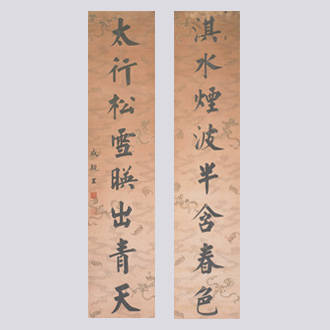 淇水煙波半含春色
太行松雪暎出青天